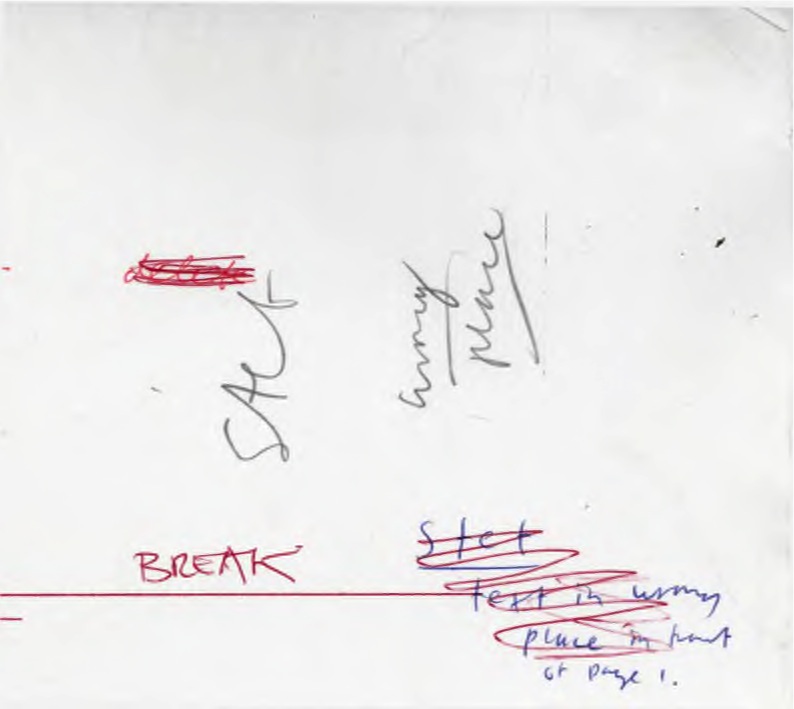 delete
Stet
wrong
place
BREAK
Stet
text in wrong
place in front
of page 1.